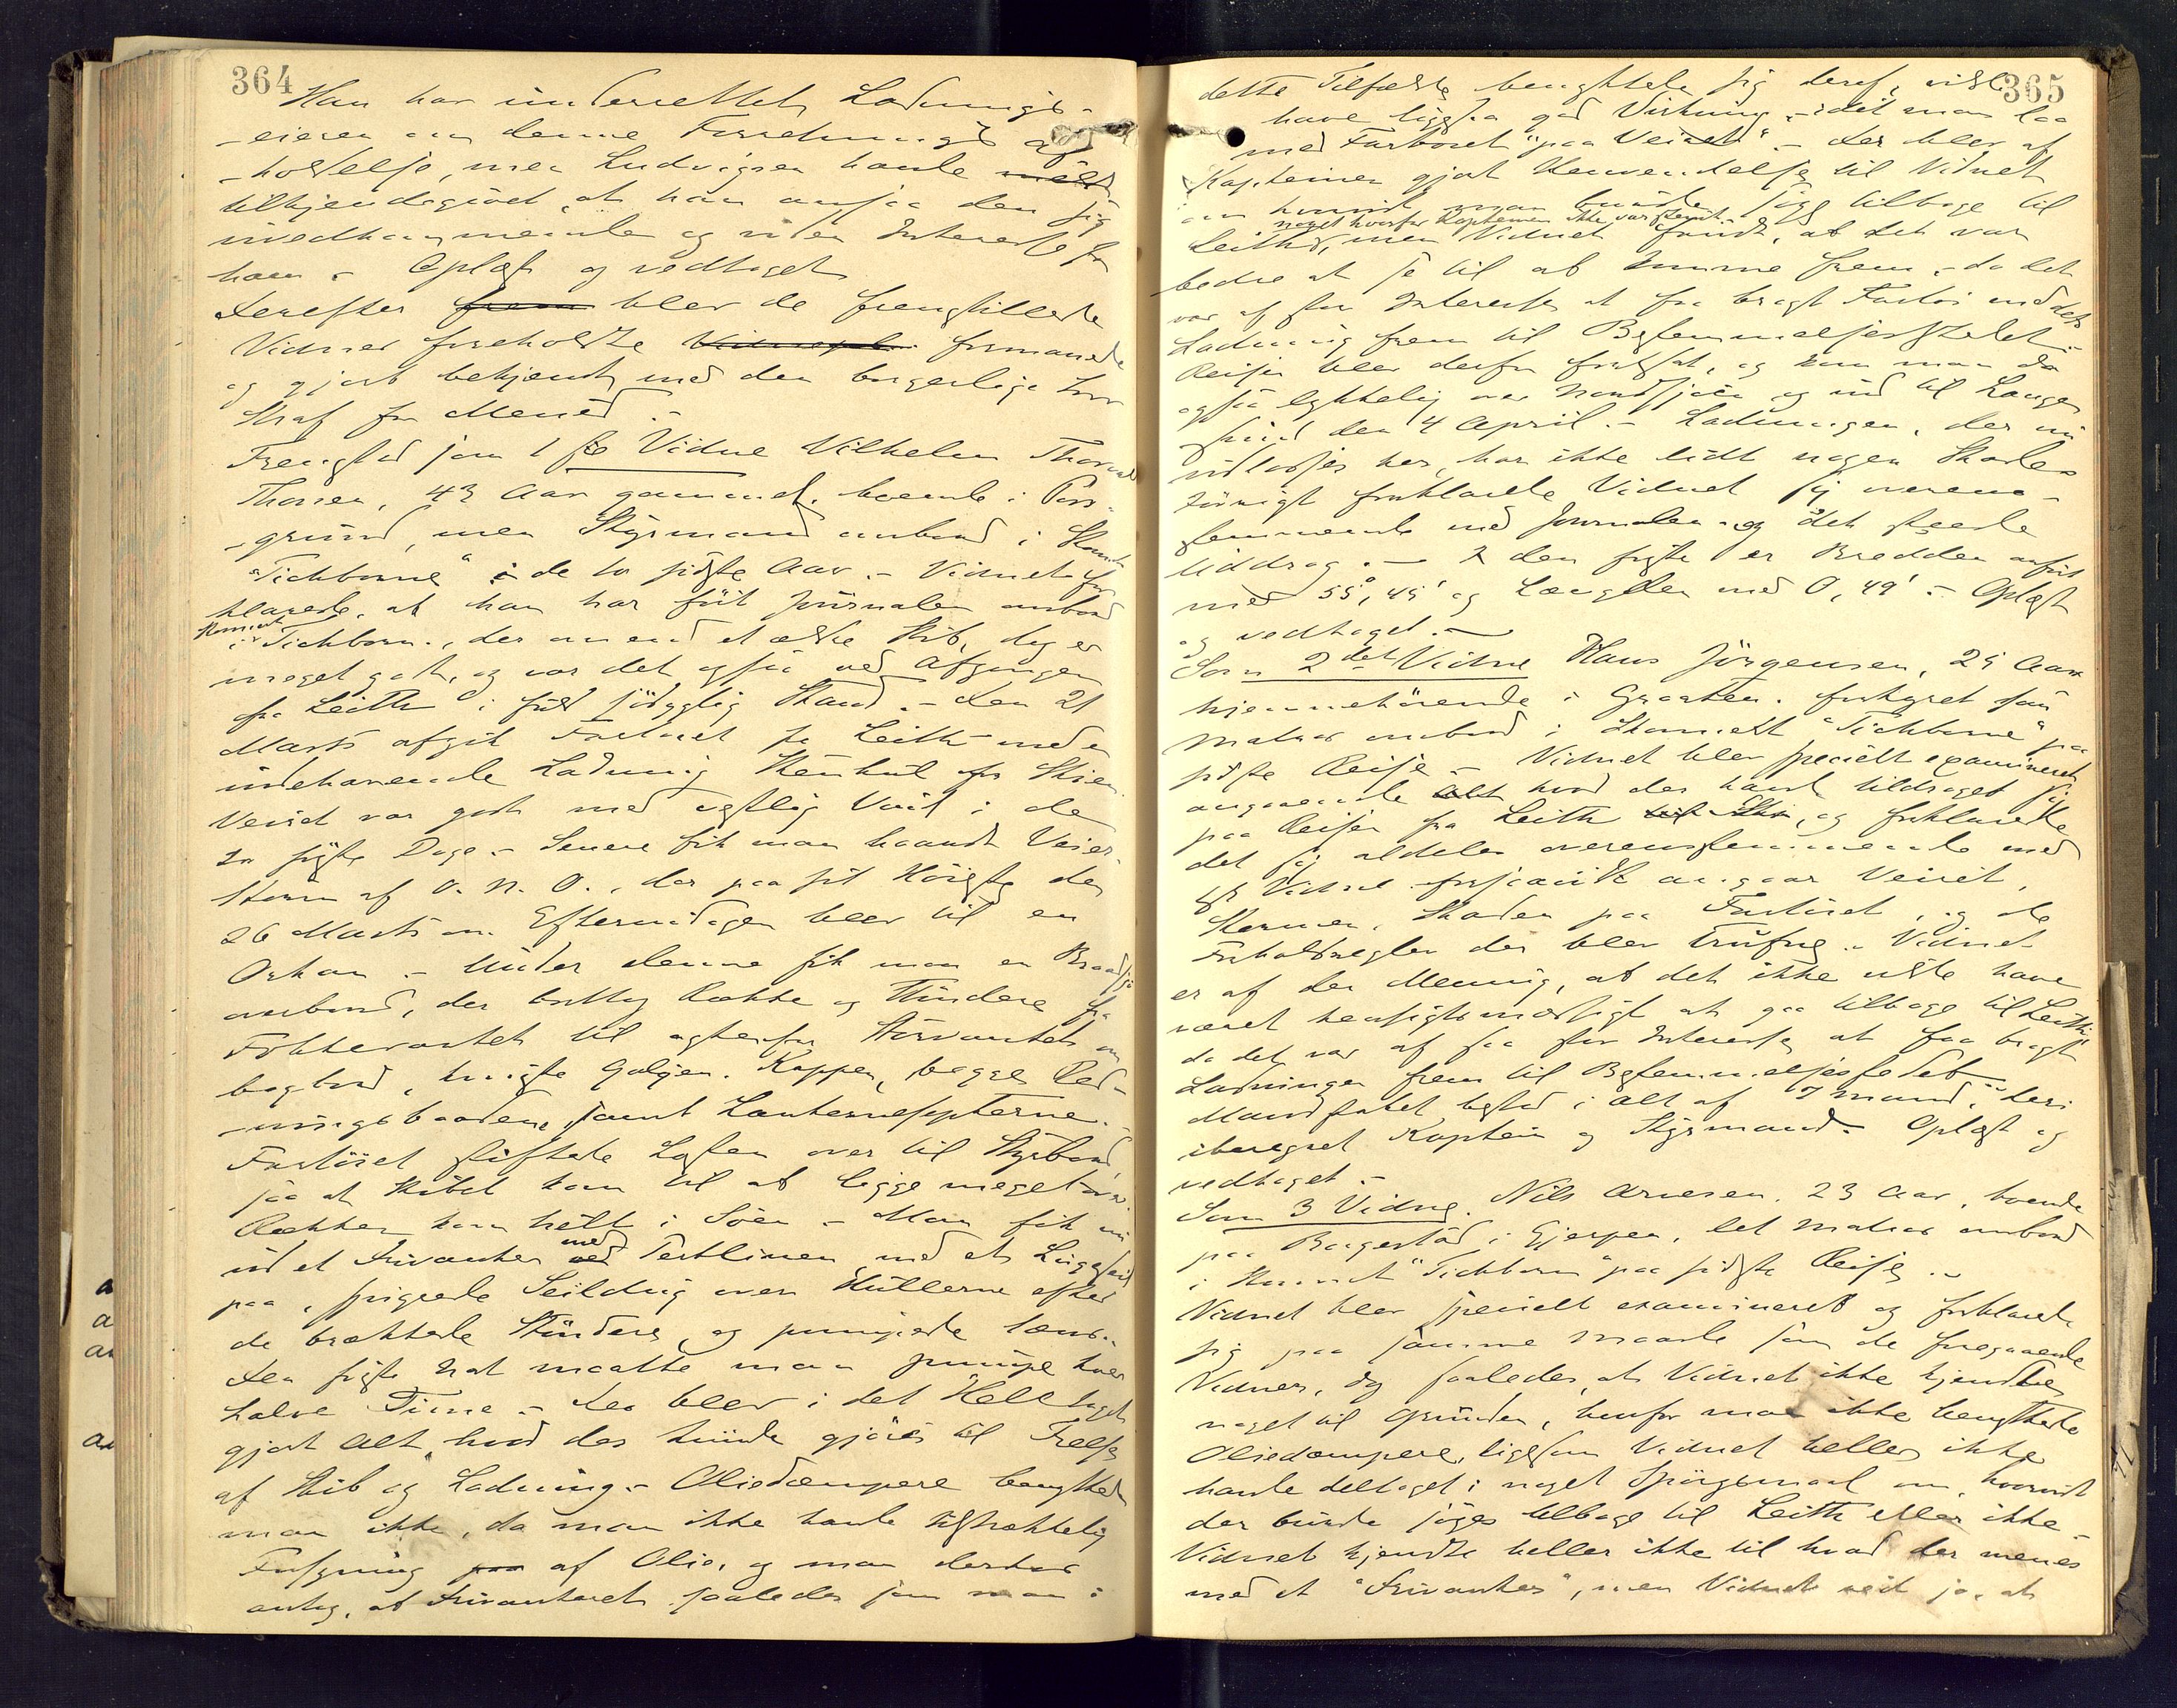 364
Han har underrettet Ladnings-
-eieren om denne Forretnings af
-holdelse, men Ludvigsen havde
tilkjendegivet, at han ansaa den sig
uvedkommende og uden Interesse for
ham. - Oplæst og vedtaget
Derefter frem blev de fremstillede
Vidner foreholdte formanede
og gjort bekjendt med den borgerlige Lovs
Straf for Mened. -
Fremstod som 1ste Vidne Vilhelm
Thorsen, 43 Aar gammel, boende i Pors-
-grund, men Styrmand ombord i
"Tichborne" i de to sidste Aar. - Vidnet for
klarede, at han har ført Journalen ombord
i Tichborn., der om end et ældre Skib, dog er
meget godt, og var det ogsaa ved Afgangen
fra Leith i fuld sjødygtig Stand. - Den 21
Marts afgik Fartøiet fra Leith med en
indehavende Ladning Stenkul for Skien
Veiret var godt med vestlig Vind i de
to første Dage. - Senere fik man haardt Veir,
Storm af O. N. O., der paa sit Høieste den
26 Marts om Eftermidagen blev til en
Orkan. - Under denne fik man en Braadsjø
ombord, der knuste Række og Støndere fra
Fokkevantet til agterfor Storvantet om
bagbord, knuste Galgen, Kappen, begge Red-
-ningsbaadene samt Lanternespterne. -
Fartøiet skiftede Lasten over til Styrbord,
saa at Skibet kom til at ligge meget over
Rækken kom helt i Søen - Man fik nu
ud et Drivanker med Pertlinen med et Lugeseil
paa, spigrede Seildug over Hullerne efter
de brækkede Støndere, og pumpede læns. -
Den første Nat maatte man pumpe hver
halve Time. - Der blev i det Hele taget
gjort Alt, hvad der kunde gjøres til Frelse
af Skib og Ladning. - Oliedæmpere benyttede
man ikke, da man ikke havde tilstrækkelig
Forsyning paa af Olie, og man derhos
antog, at Drivankeret saaledes som man i
365
dette Tilfælde benyttede sig deraf, vilde
have ligesaa god Virkning, - idet man laa
med Farkosten "paa Veiret". - Der blev af
Kapteinen gjort Henvendelse til Vidnet
om hvorvidt man burde søge tilbage til
noget hvorfor Kapteinen ikke var stemt. -
Leith, men Vidnet fandt, at det var
bedre at se til at komme frem, - da det
var af stor Interesse at faa bragt Fartøi med dets
Ladning frem til Bestemmelsesstedet. -
Reisen blev derfor fortsat, og kom man da
ogsaa lykkelig over Nordsjøen og ind til Langø
sund den 4 April. - Ladningen, der nu
udlosses her, har ikke lidt nogen Skade. -
Forøvrigt forklarede Vidnet sig overens-
stemmende med Journalen og det skeede
Uddrag. - I den sidste er Bredden anført
med 55°, 45' og Længden med 0, 49'. - Oplæst
og vedtaget. -
Som 2det Vidne Hans Jørgensen, 25 Aar
hjemmehørende i Graaten. forhyret som
Matros ombord i Skonnert "Tichborne" paa
sidste Reise. - Vidnet blev specielt examineret
angaaende Alt hvad der havde tildraget sig
paa Reisen fra Leith, og forklarede
det sig aldeles overensstemmende med
1ste Vidne forsaavidt angaar Veiret,
Stormen, Skaden paa Fartøiet, og de
Forholdsregler der blev trufne. - Vidnet
er af den Mening, at det ikke vilde have
været hensigtsmæssigt at gaa tilbage til Leith
da det var af saa stor Interesse at faa bragt
Ladningen frem til Bestemmelsesstedet. -
Mandskabet bestod i alt af 7 mand, deri
iberegnet Kaptein og Styrmand. - Oplæst og
vedtaget. -
Som 3 Vidne. Nils Arnesen. 23 Aar, boende
paa Borgestad i Gjerpen, let Matros ombord
i Skonnert "Tichborn" paa sidste Reise. -
Vidnet blev specielt examineret og forklarede
sig paa samme Maade som de foregaaende
Vidner, dog saaledes, at Vidnet ikke kjendte
noget til Grunden, hvorfor man ikke benyttede
Oliedæmpere, ligesom Vidnet heller ikke
havde deltaget i noget Spørgsmaal om, hvorvidt
der burde søges tilbage til Leith eller ikke -
Vidnet kjendte heller ikke til hvad der menes
med et "Drivanker", men Vidnet ved jo, at